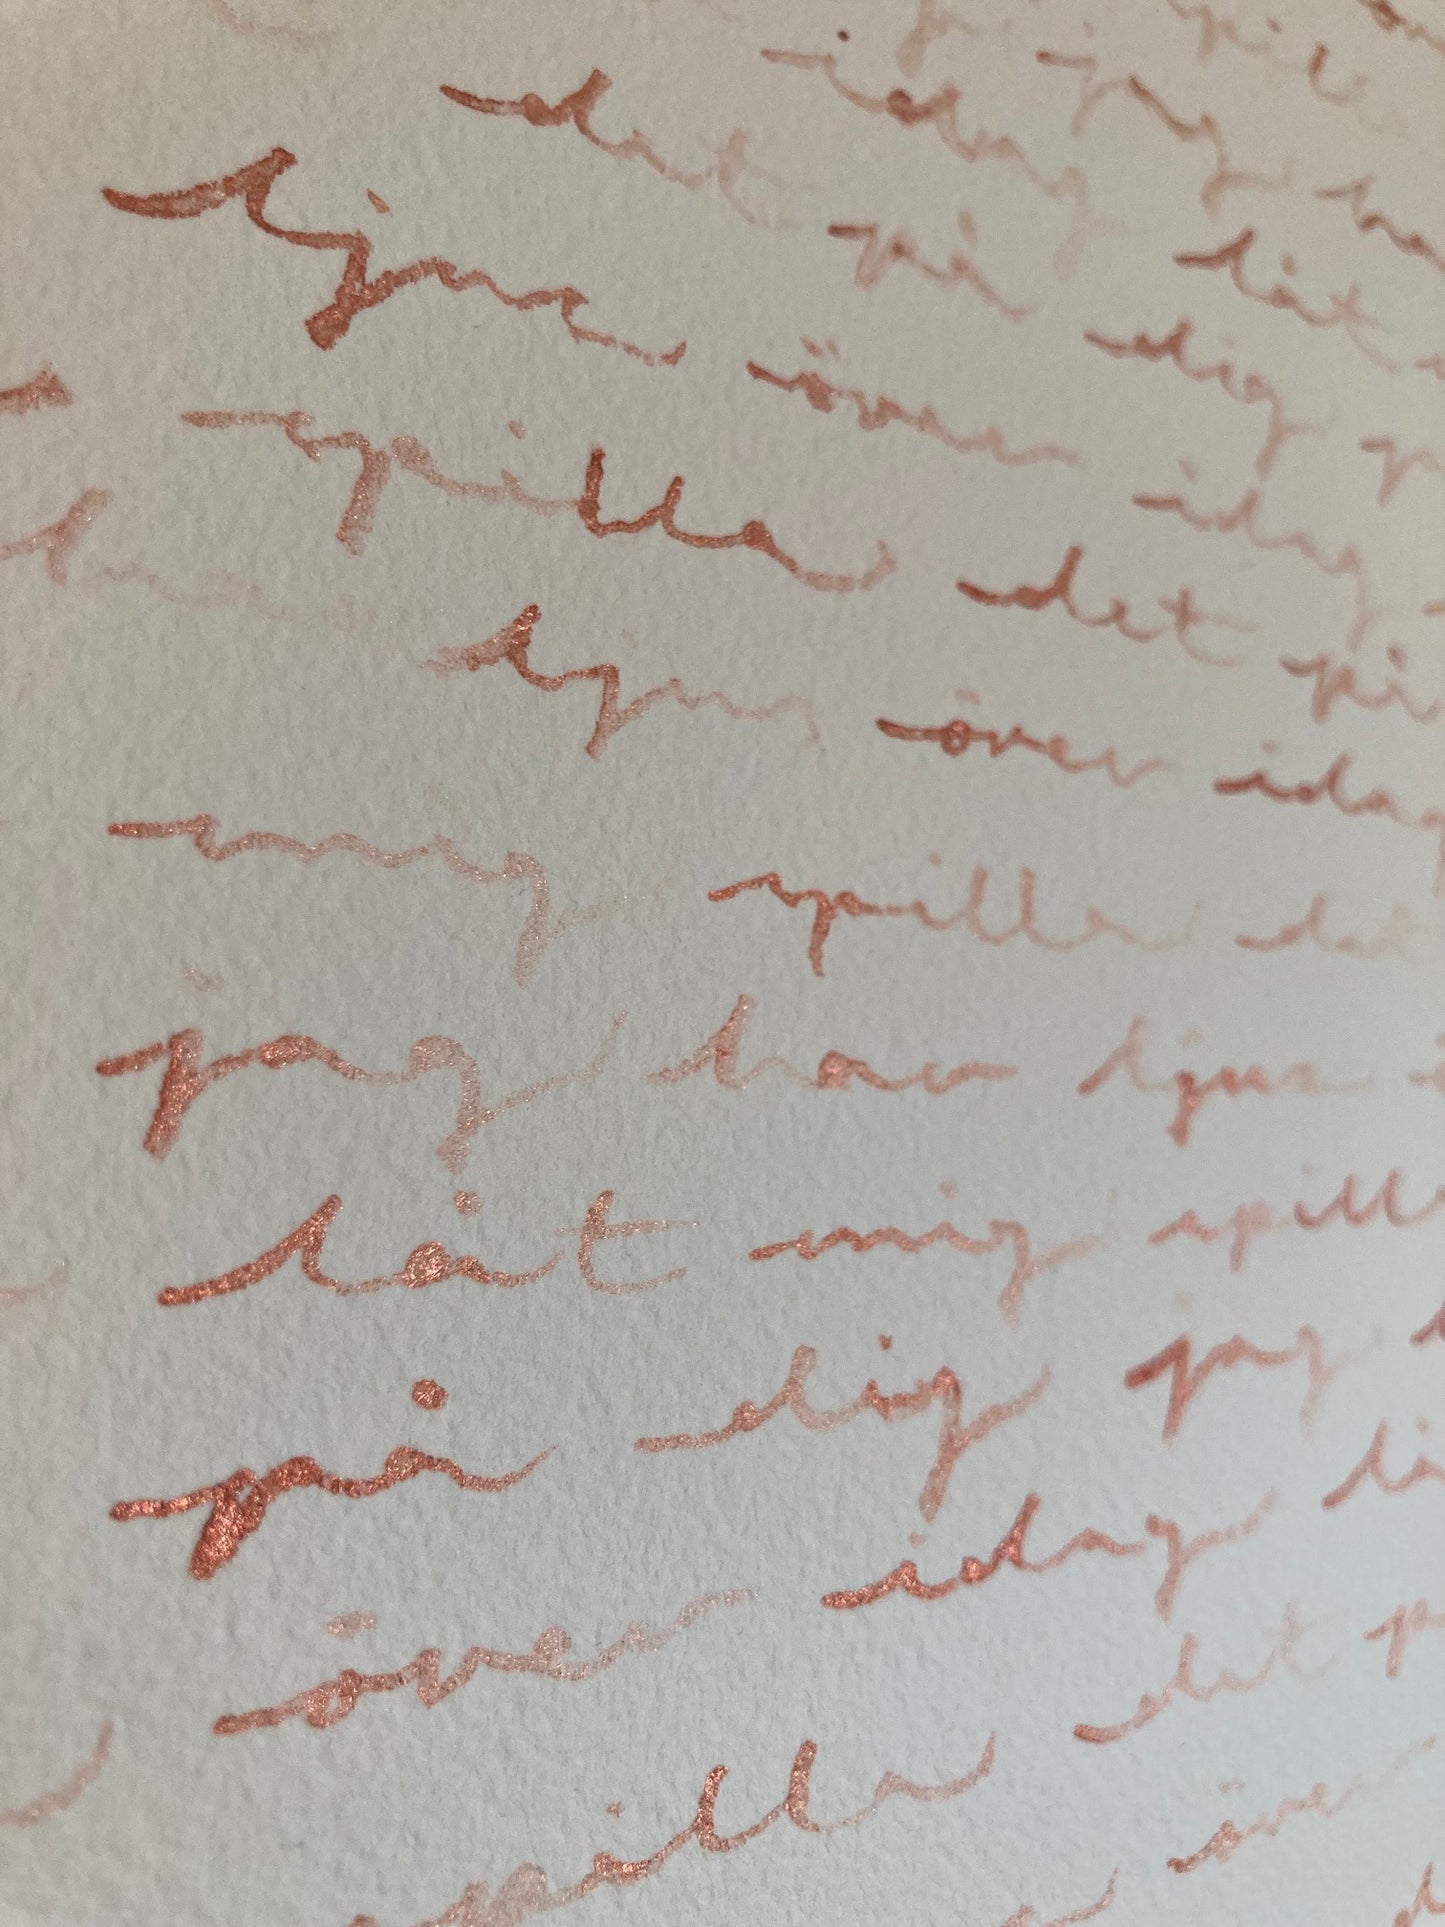 jag
idag låt
det på dig
ljus över idag
spilla det på
har ljus över idag
mig spilla det
jag har ljus
låt mig spilla
på dig jag
över idag
spilla det
över